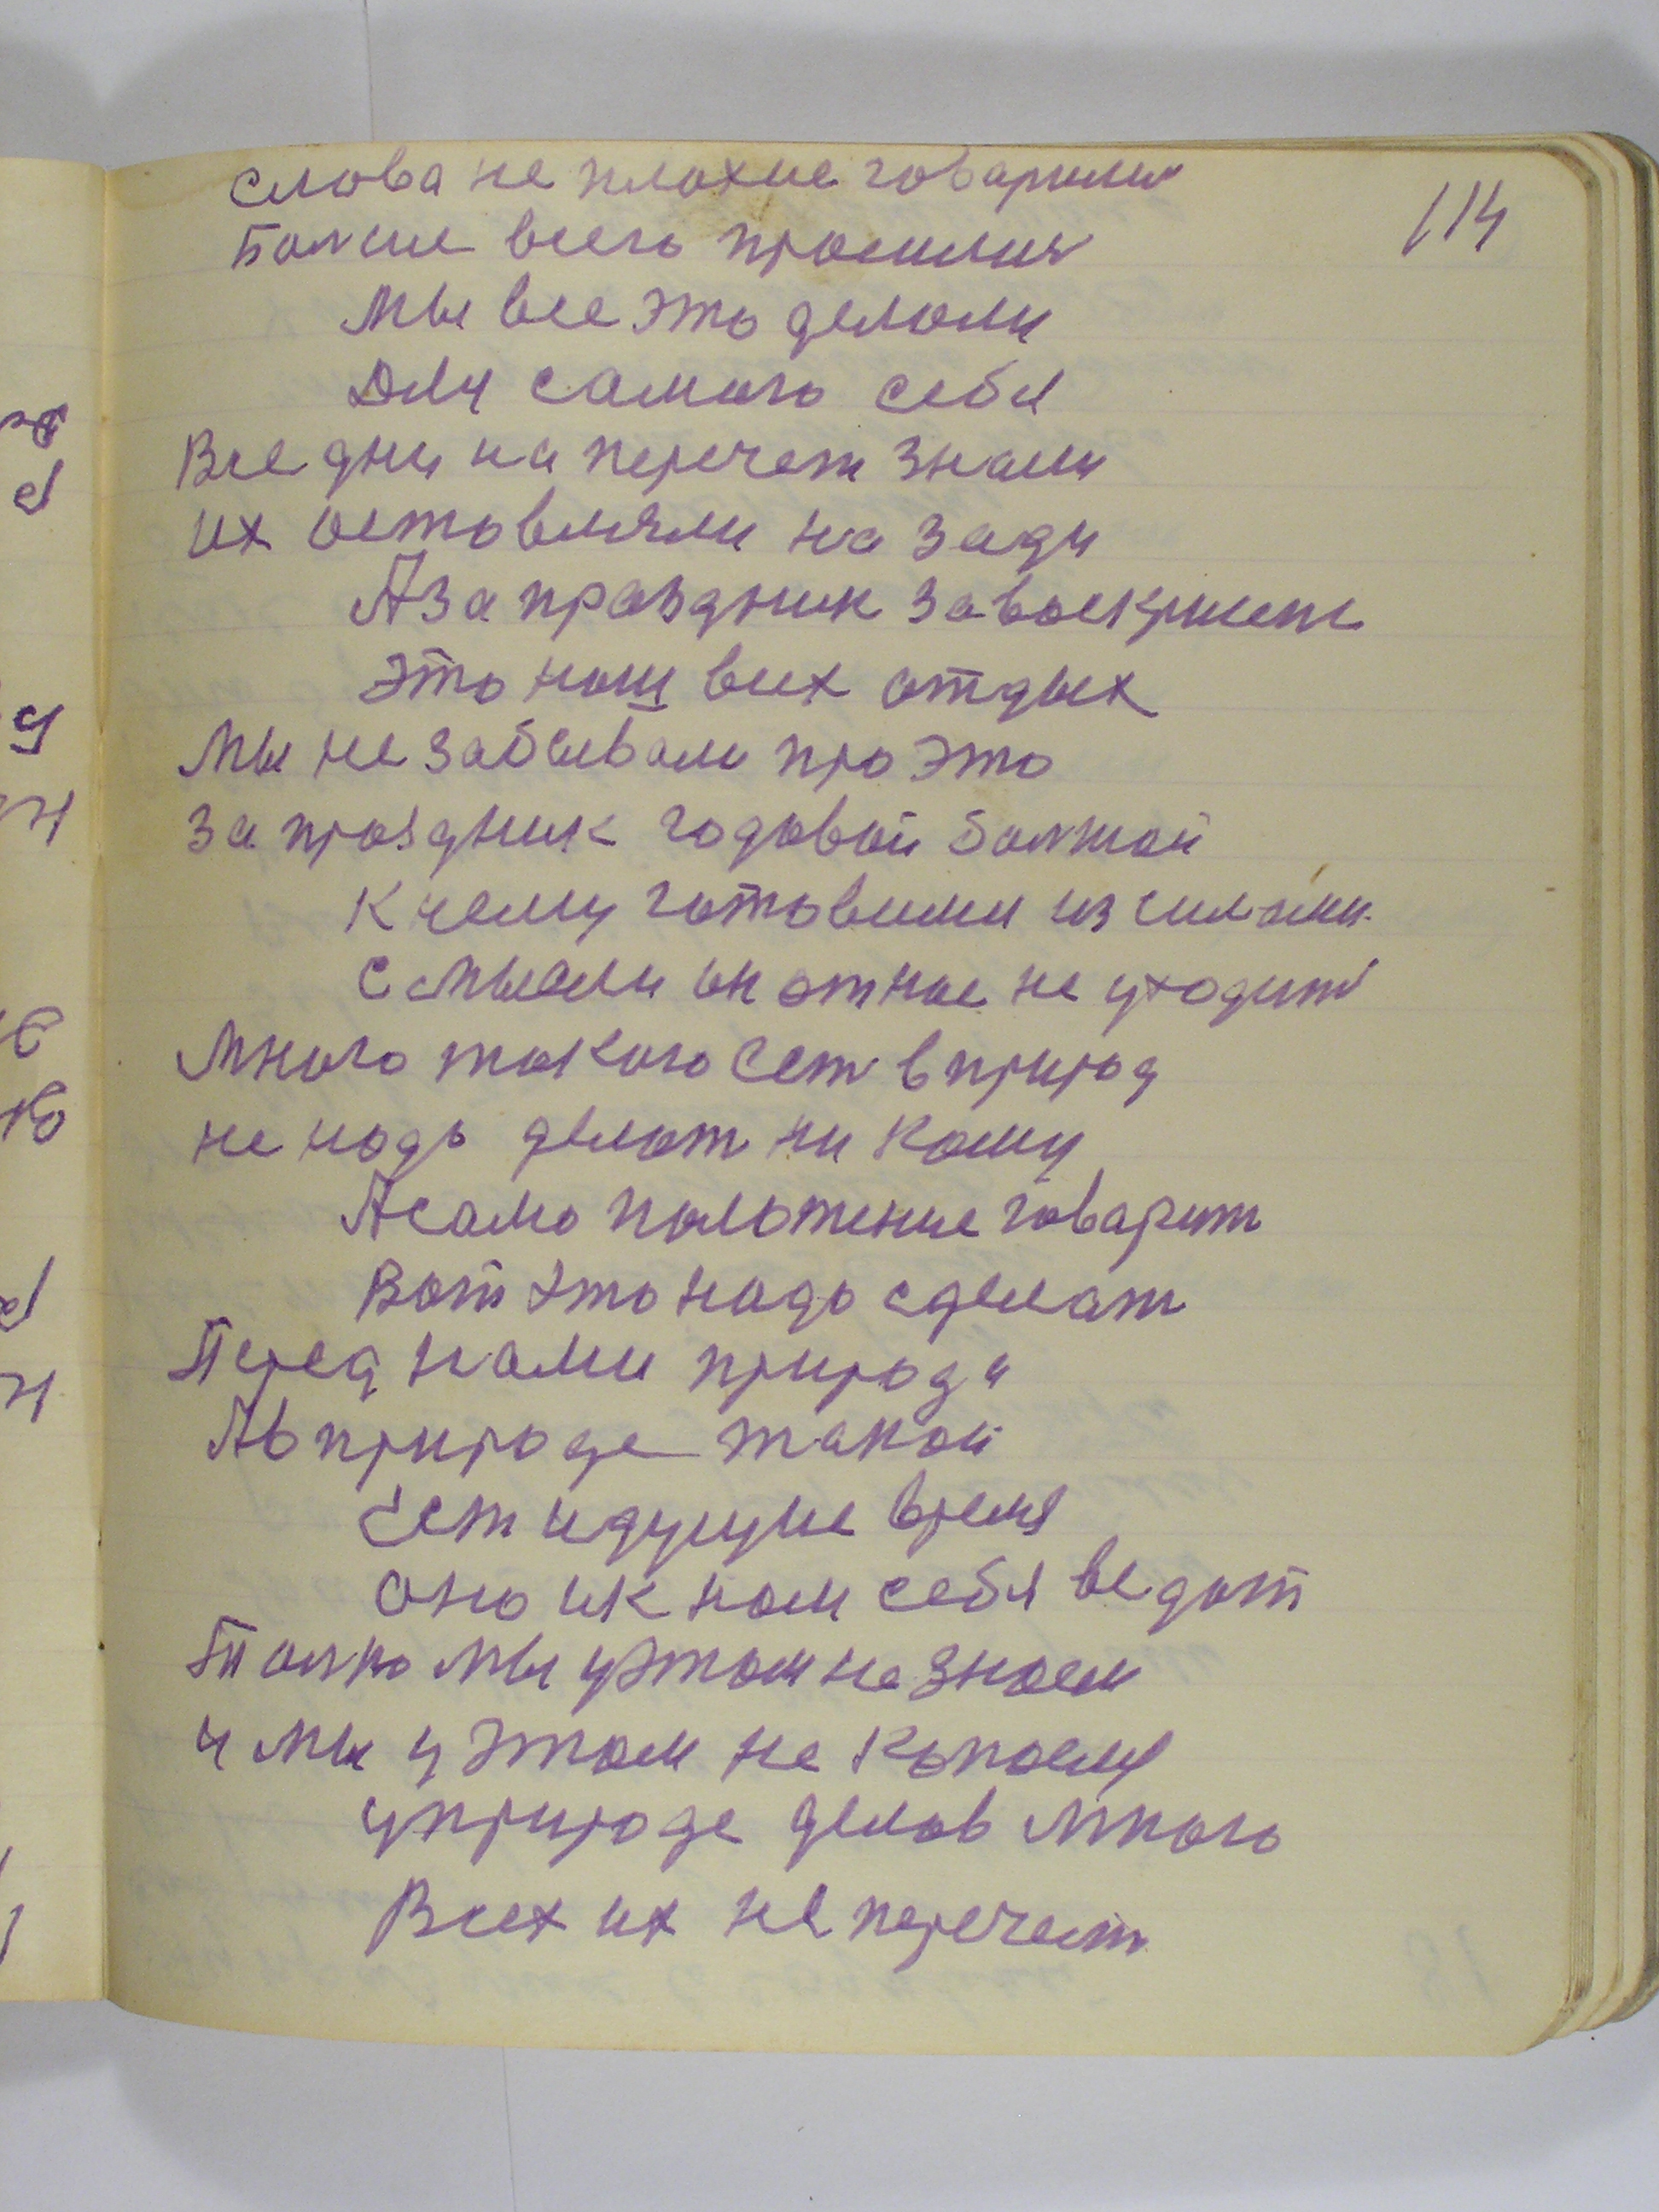 114
слова не плохие говарили
Болше всего просилис
мы все это делали
Для самого себя
Все дни на перечет знали
их оставляли на зади
А за праздник за воскрисене
Это наш всих отдых
Мы не забывали про это
за праздник годовой болшой
К нему готовилис из силами
С мысли он от нас не уходит
Много такого ест в природ
не надо делат ни кому
А само положение говарит
Вот это надо сделат
Перед нами природа
А в природе такой
Ест идущие время
Оно ик нам себя ведот
Толко мы у этом не знаем
и мы у этом не копаемся
у природе делов много
Всех их не перечест